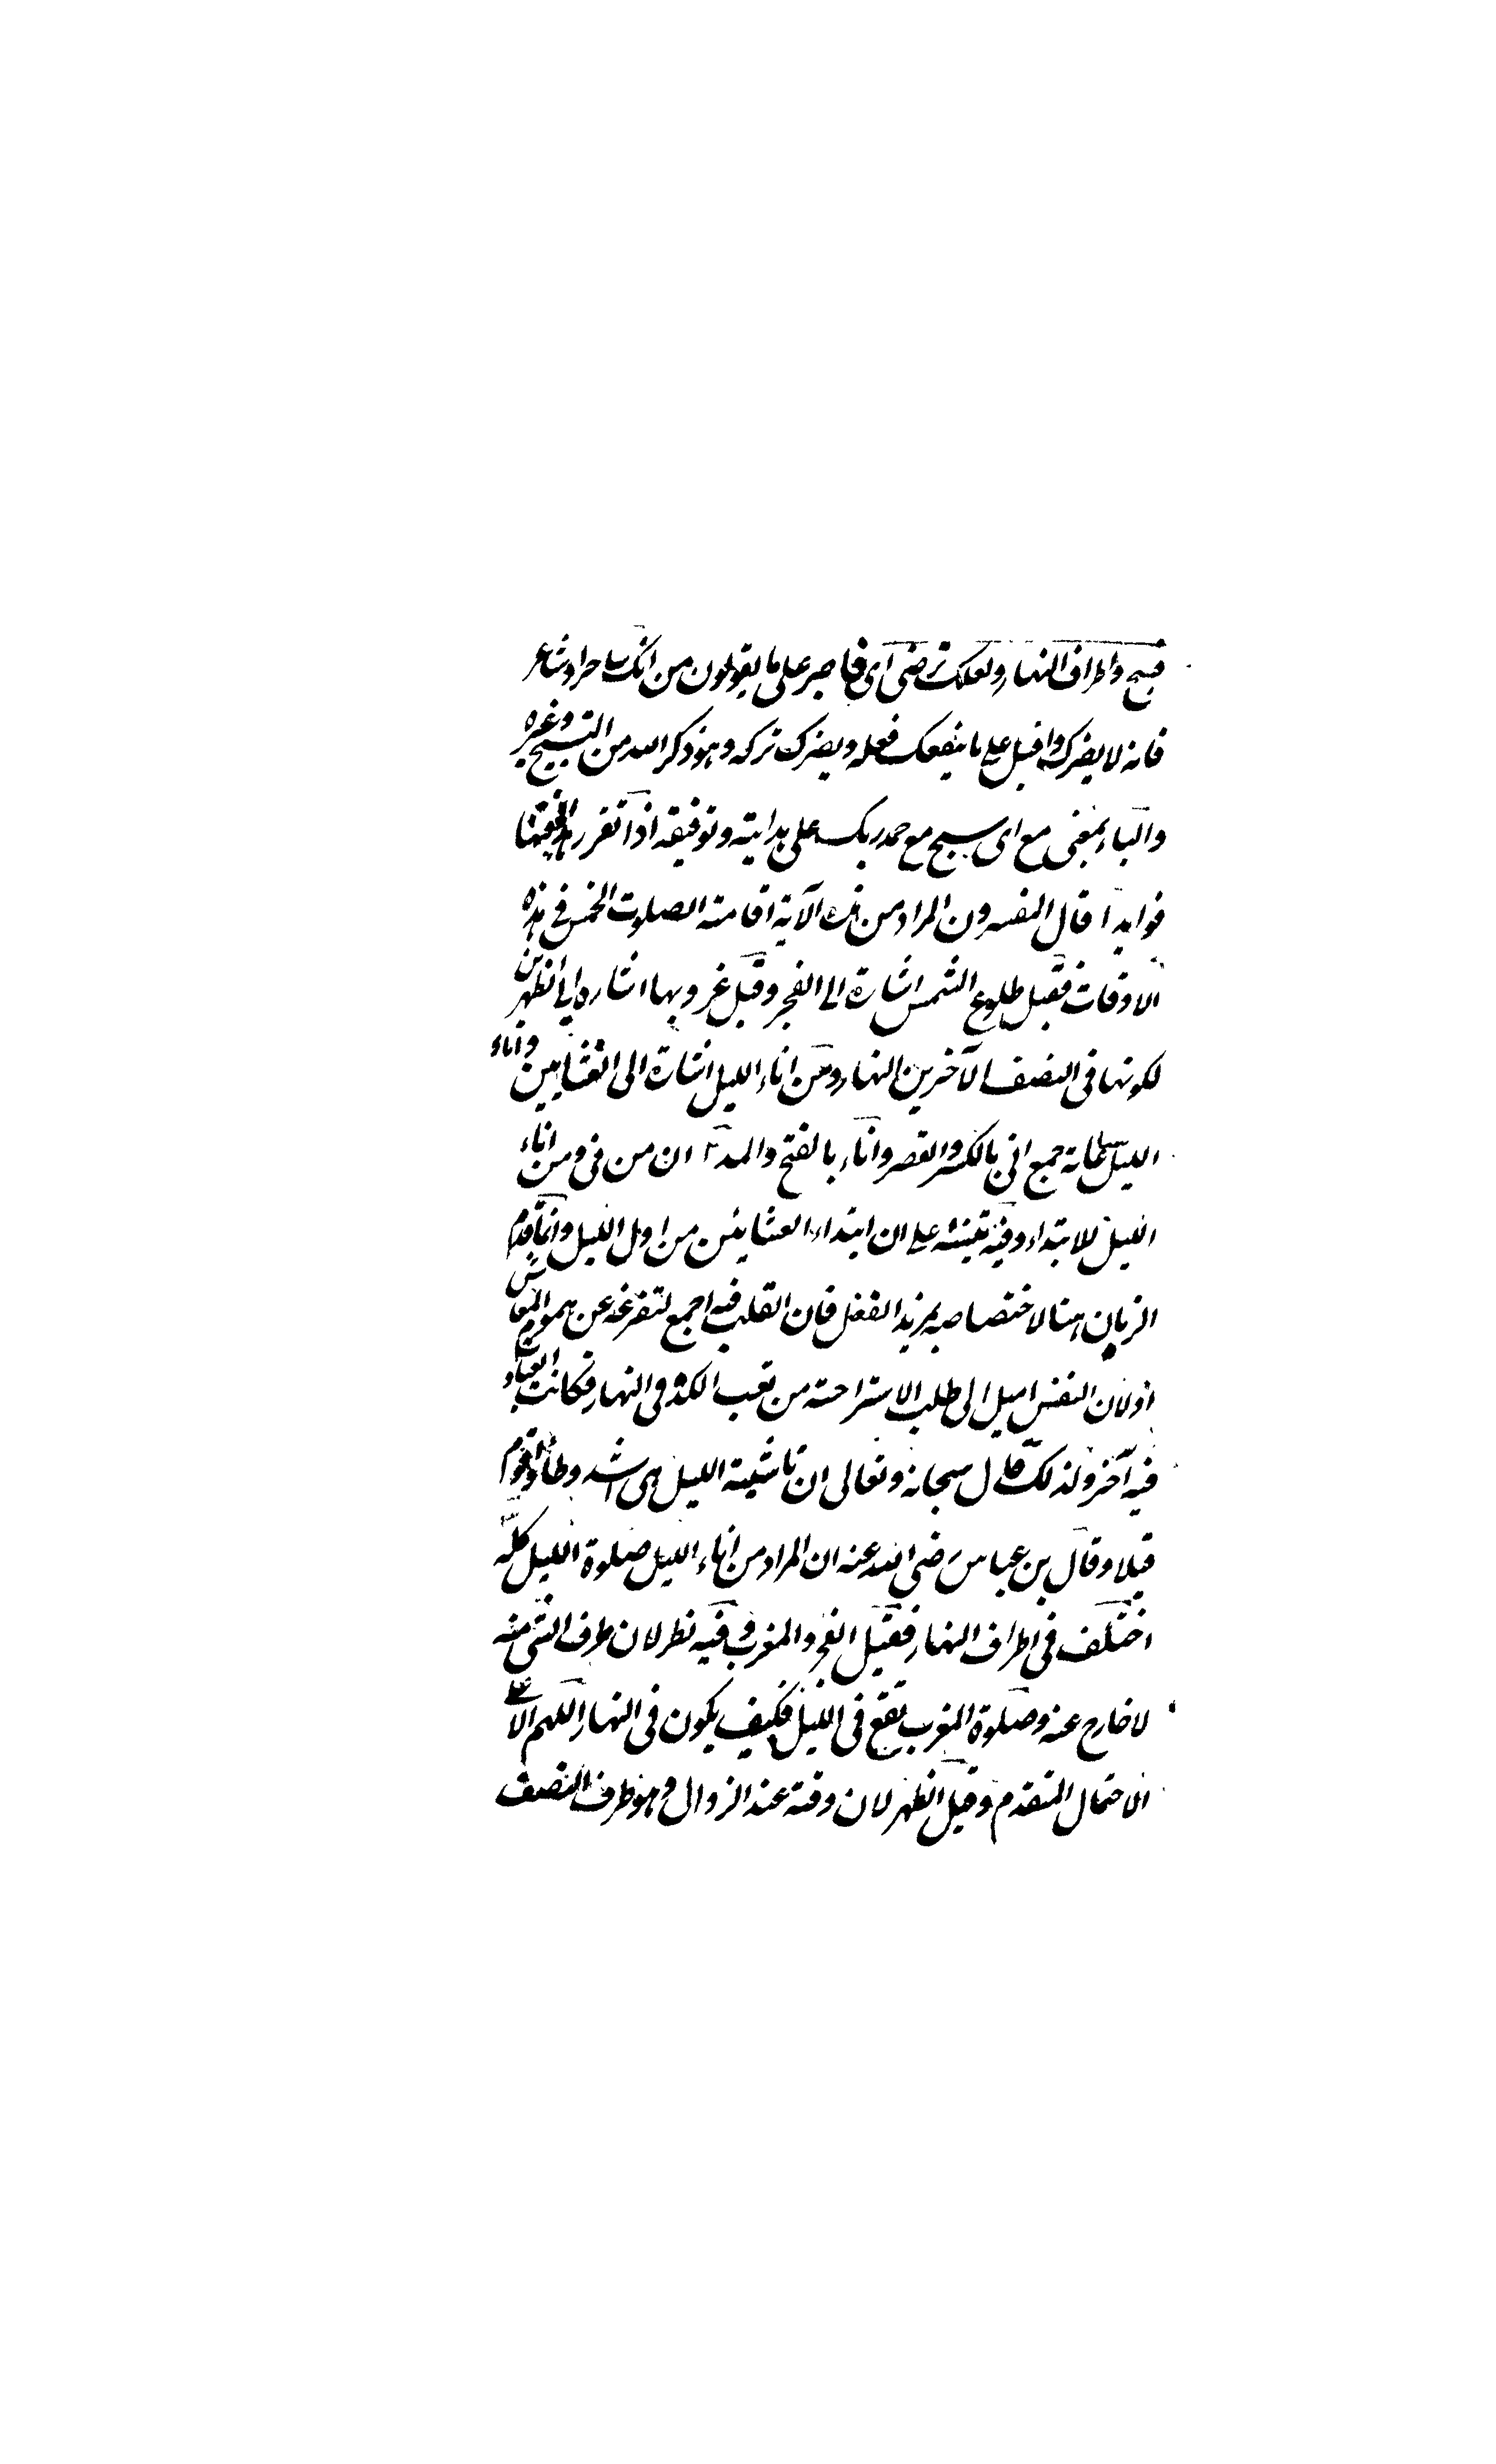 فسبح واطراف النهار ولعلك ترضى اى فاصبر على ما يقولون من انك ساحر او شاعر
فانه لا يضرك واقبل على ما ينفعك فعله ويضرك تركه وهو ذكر الله من التسبيح وغيره
والباء بمعنى مع اى سبح مع حمد ربك على هدايته وتوفيقه اذا تقرر هذا فهنا
فوايد ا قال المفسرون المراد من هذه الآية اقامة الصلوت الخمس فى هذه
الاوقات فقبل طلوع الشمس اشارة الى الفجر وقبل غروبها اشاره الى الظهرين
لكونها فى النصف الآخر من النهار ومن اناء الليل اشارة الى العشايين واناء
الليل ساعاته جمع انى بالكسر والقصر واناء بالفتح والمد ٢ ان من فى ومن اناء
الليل للابتداء وفيه تنبيه على ان ابتداء العشايين من اول الليل وانما قدم
الزمان هنا لاختصاصه بمزيد الفضل فان القلب فيه اجمع لتفرغه عن هموم المعاش
او لان النفس اميل الى طلب الاستراحة من تعب الكد فى النهار فكانت العبادة
فيه آخر ولذلك قال سبحانه وتعالى ان ناشيئة الليل هى اشد وطأ واقوم
قيلا وقال بن عباس رضى الله عنه ان المراد من اناء الليل صلوة الليل كله
اختلف فى اطراف النهار فقيل الفجر والمغرب وفيه نظر لان طرف الشئ منه
لا خارج عنه وصلوة المغرب تقع فى الليل فكيف يكون فى النهار اللهم الا على
الاحتمال المتقدم وقيل الظهر لان وقته عند الزوال وهو طرف النصف